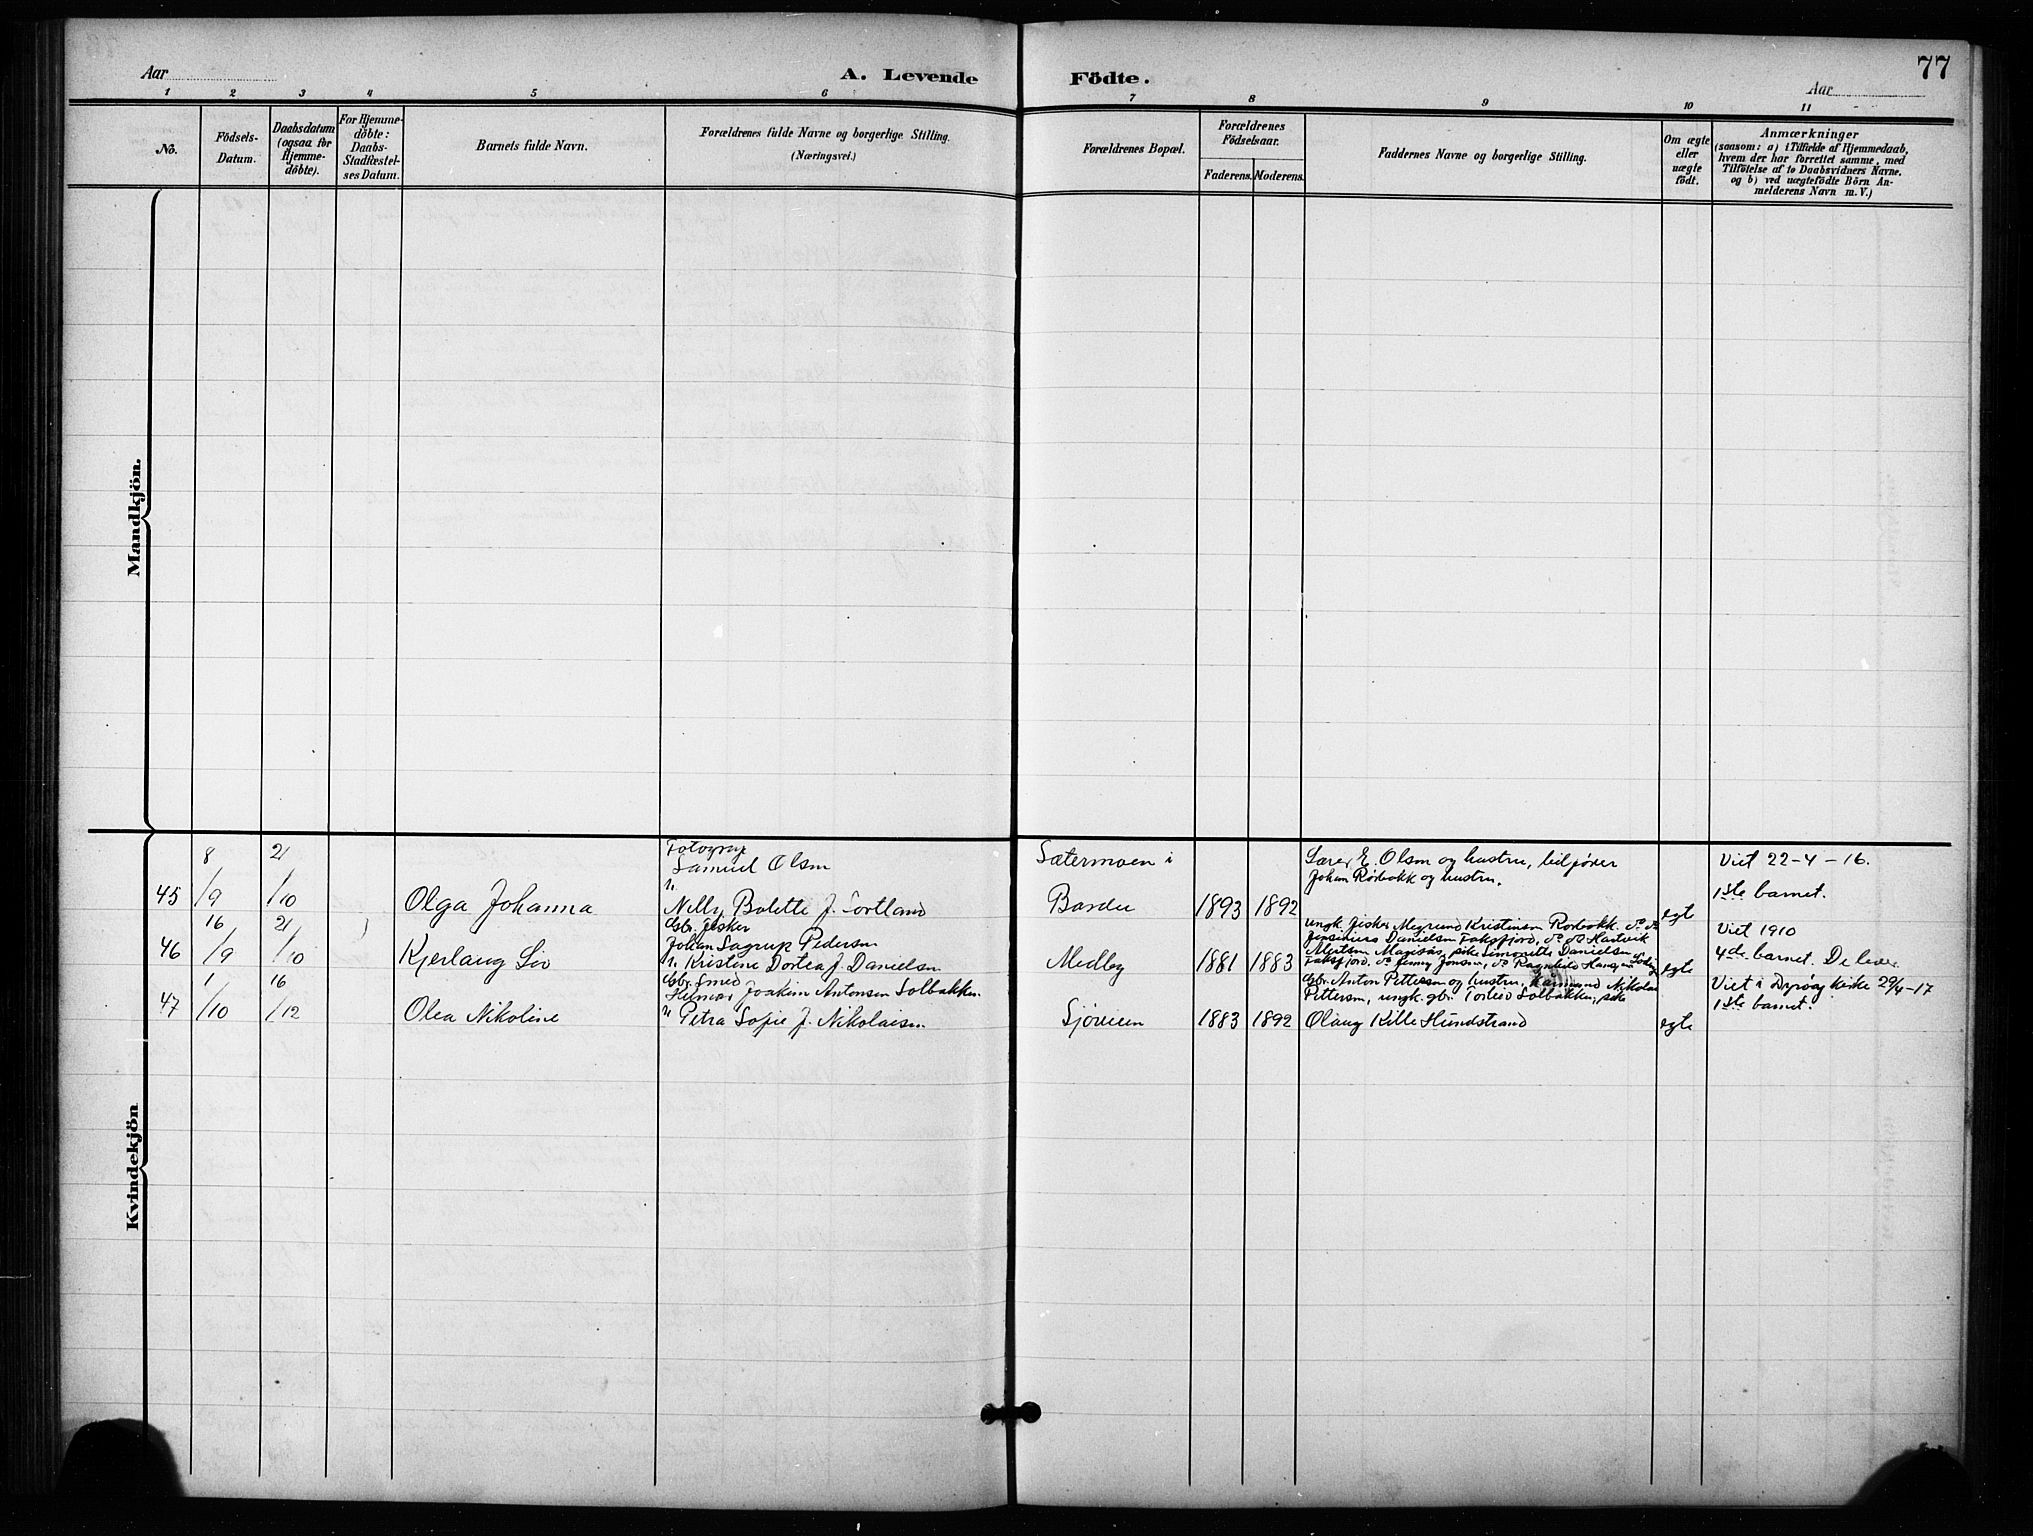 77
Aar
A. Levende Födte.
Aar
1 2 3 4 5 6 7 8 9 10 11
No.
Födsels-
Datum.
Daabsdatum
(ogsaa for
Hjemme-
döbte).
For Hjemme-
döbte:
Daabs-
Stadfæstel-
ses Datum.
Barnets fulde Navn.
Forældrenes fulde Navne og borgerlige Stilling.
(Næringsvei.)
Forældrenes Bopæl.
Forældrenes
Födselsaar.
Faderens. Moderens.
Faddernes Navne og borgerlige Stilling.
Om ægte
eller
uægte
födt.
Anmærkninger
(saasom: a) i Tilfælde af Hjemmedaab,
hvem der har forrettet samme, med
Tilföielse af to Daabsvidners Navne,
og b) ved uægtefödte Börn An-
melderens Navn m. V.)
Mandkjön.
Kvindekjön
45
8/9
21/10
Olga Johanna
Fotograf
Samuel Olsen
Nelly Bolette f. Sortland
Sætermoen i
Bardu
1893 1892
E. Olsen og hustru,
Johan Rörbakk og hustru.
egte
Viet 22-4-16.
1ste barnet.
46
16/9
21/10
Kjerlaug Liv
Gbr. fisker
Johan Sagrup Pedersen
Kristine Dortea f. Danielsen
Medby
1881 1883
ungk. fisker Kristensen Rorbakk. do do
Danielsen Faksfjord, do do Hartvik
pike Simonette Danielsen
Faksfjord, do Jenny Jensen, do Ragnhild Hansen
egte
Viet 1910
4de barnet. De lever
47
1/10
16/12
Olea Nikoline
Gbr. Smed
Helmer Joakim Antonsen Solbakken.
Petra Sofie f. Nikolaisen.
Sjöveien
1883 1892
Gbr. Anton Pettersen og hustru, Nikolai
Pettersen, ungk. gbr. Solbakken, pike
Olaug Kille Hundstrand
egte
Viet i Dyröy kirke 29/4-17
1ste barnet.